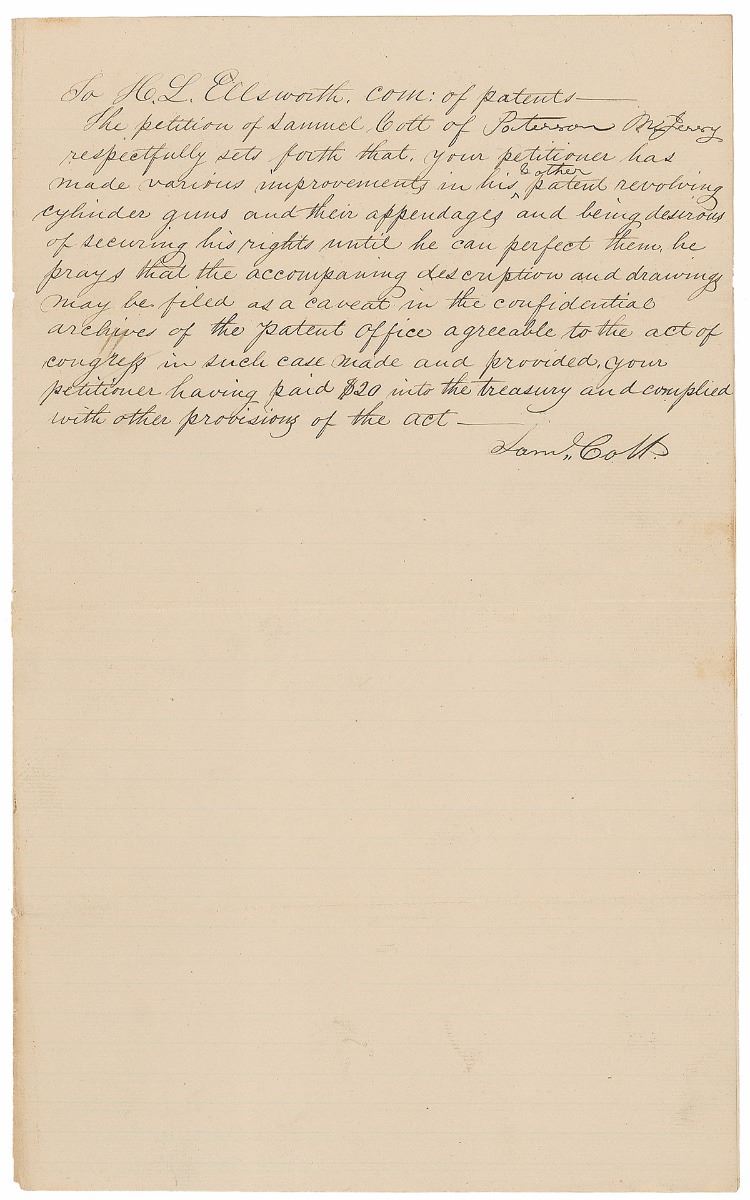 To H. L. Ellsworth. com: of patents—
The petition of Samuel Colt of Paterson N. Jersy
respectfully sets forth that, your petitioner has
made various improvements in his ^& other patent revolving
cylinder guns and their appendages and being desirous
of securing his rights until he can perfect them, he
prays that the accompaning description and drawings
may be filed as a caveat in the confidential
archives of the patent office agreeable to the act of
congress in such case made and provided, your
petitioner having paid $20 into the treasury and complied
with other provisions of the act—
Saml,, Colt.